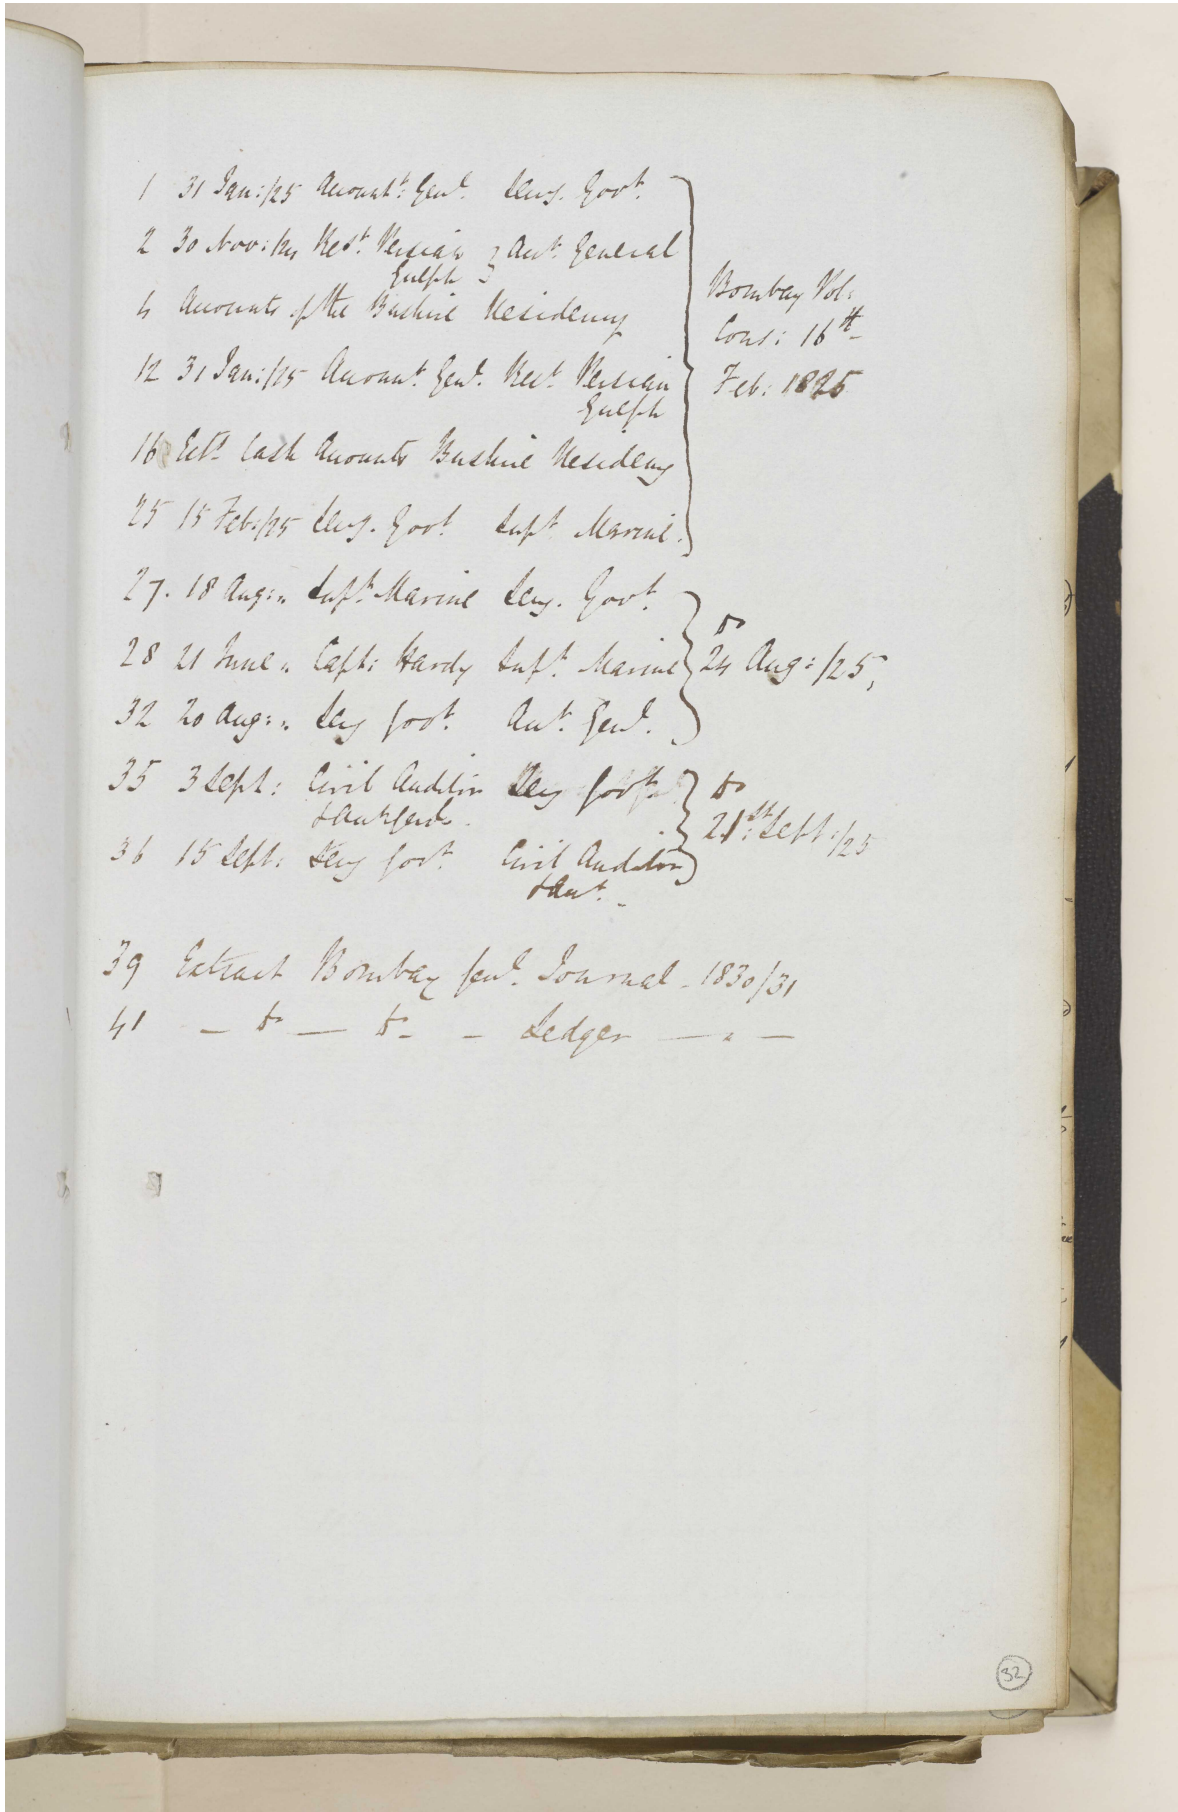 1 31 Jan:/25 Account:t Genl. Secy. Govt.
2 30 Nov:/24 Rest. Persian Gulph } Acct. General
4 Accounts of the Bushire Residency
12 31 Jan:/25 Account. Genl. Rest. Persian
Gulph
16 Extt. Cash Accounts Bushire Residency
25 15 Feb:/25 Secy. Govt. Supt. Marine.
Bombay Pol:
Cons: 16th
Feb: 1825
27. 18 Aug: " Supt. Marine Secy. Govt.
28 21 June " Capt: Hardy Supt. Marine
32 20 Aug: " Secy Govt. Acct. Genl.
Do
24 Aug:/25,
35 3 Sept: Civil Auditor Secy Govt
& Acct Genl.
36 15 Sept: Secy Govt. Civil Auditor
& Acct.
Do
21st: Sept:/25
39 Extract Bombay Genl. Journal - 1830/31
41 — Do — Do - Ledger — " —
32